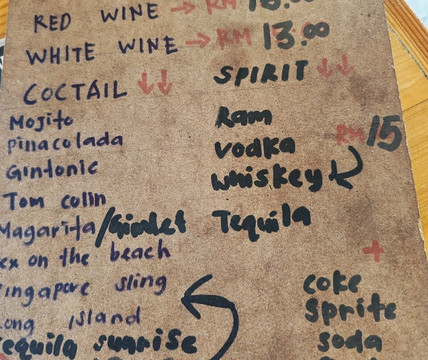 RED WINE → RM
WHITE WINE → RM 13.00
COCTAIL ↓↓
SPIRIT ↓↓
Mojito
pinacolada
Gintonic
Tom colin
Magarita/Gimlet
ex on the beach
ingapore sling
ong island
equila sunrise
Ram
vodka
whiskey
RM 15
Tequila
+
coke
sprite
soda